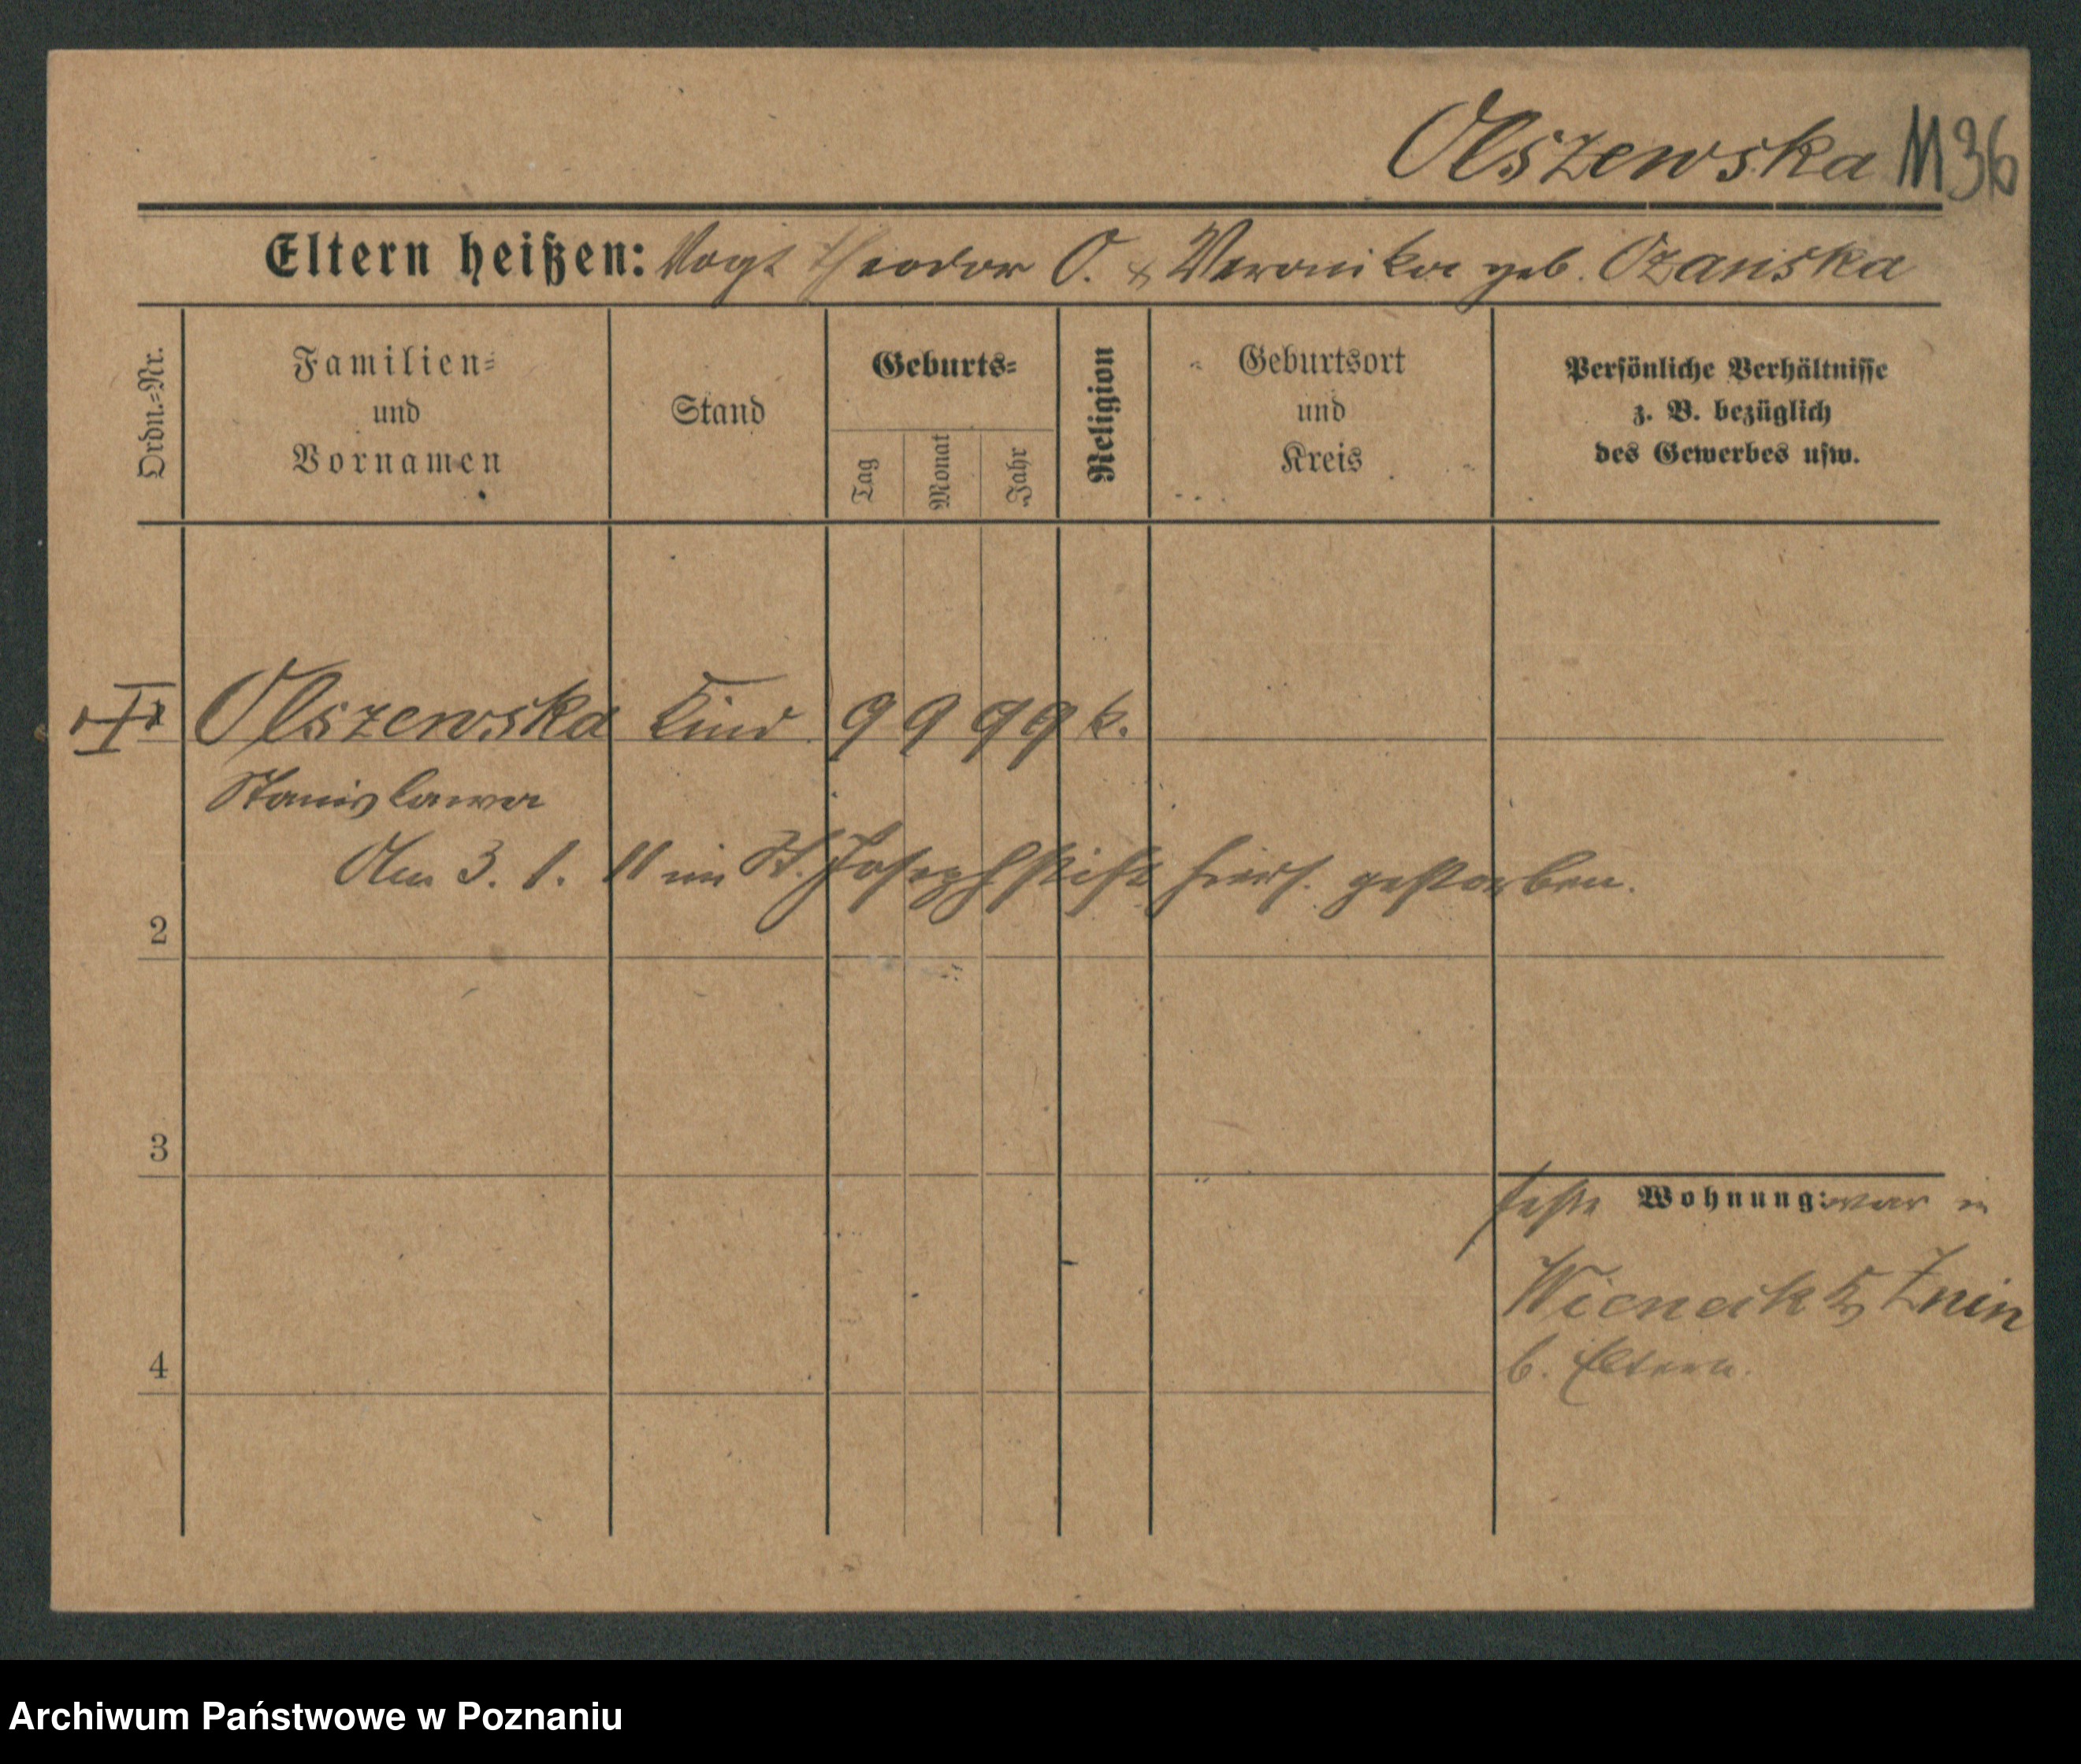 Olszewska 1136
Eltern heißen: Vogt Theodor O. & Veronika geb. Ozanska
Ordn.-Nr.
Familien-
und
Vornamen
Stand
Geburts-
Tag
Monat
Jahr
Religion
Geburtsort
und
Kreis
Persönliche Verhältnisse
z. B. bezüglich
des Gewerbes usw.
Olszewska Kind 9 9 99 k.
Stanislawa
Am 3. 1. 11 im St. Josephstift hiers. gestorben.
2
3
feste Wohnung: war in
Znin
4 b. Eltern.
Archiwum Państwowe w Poznaniu